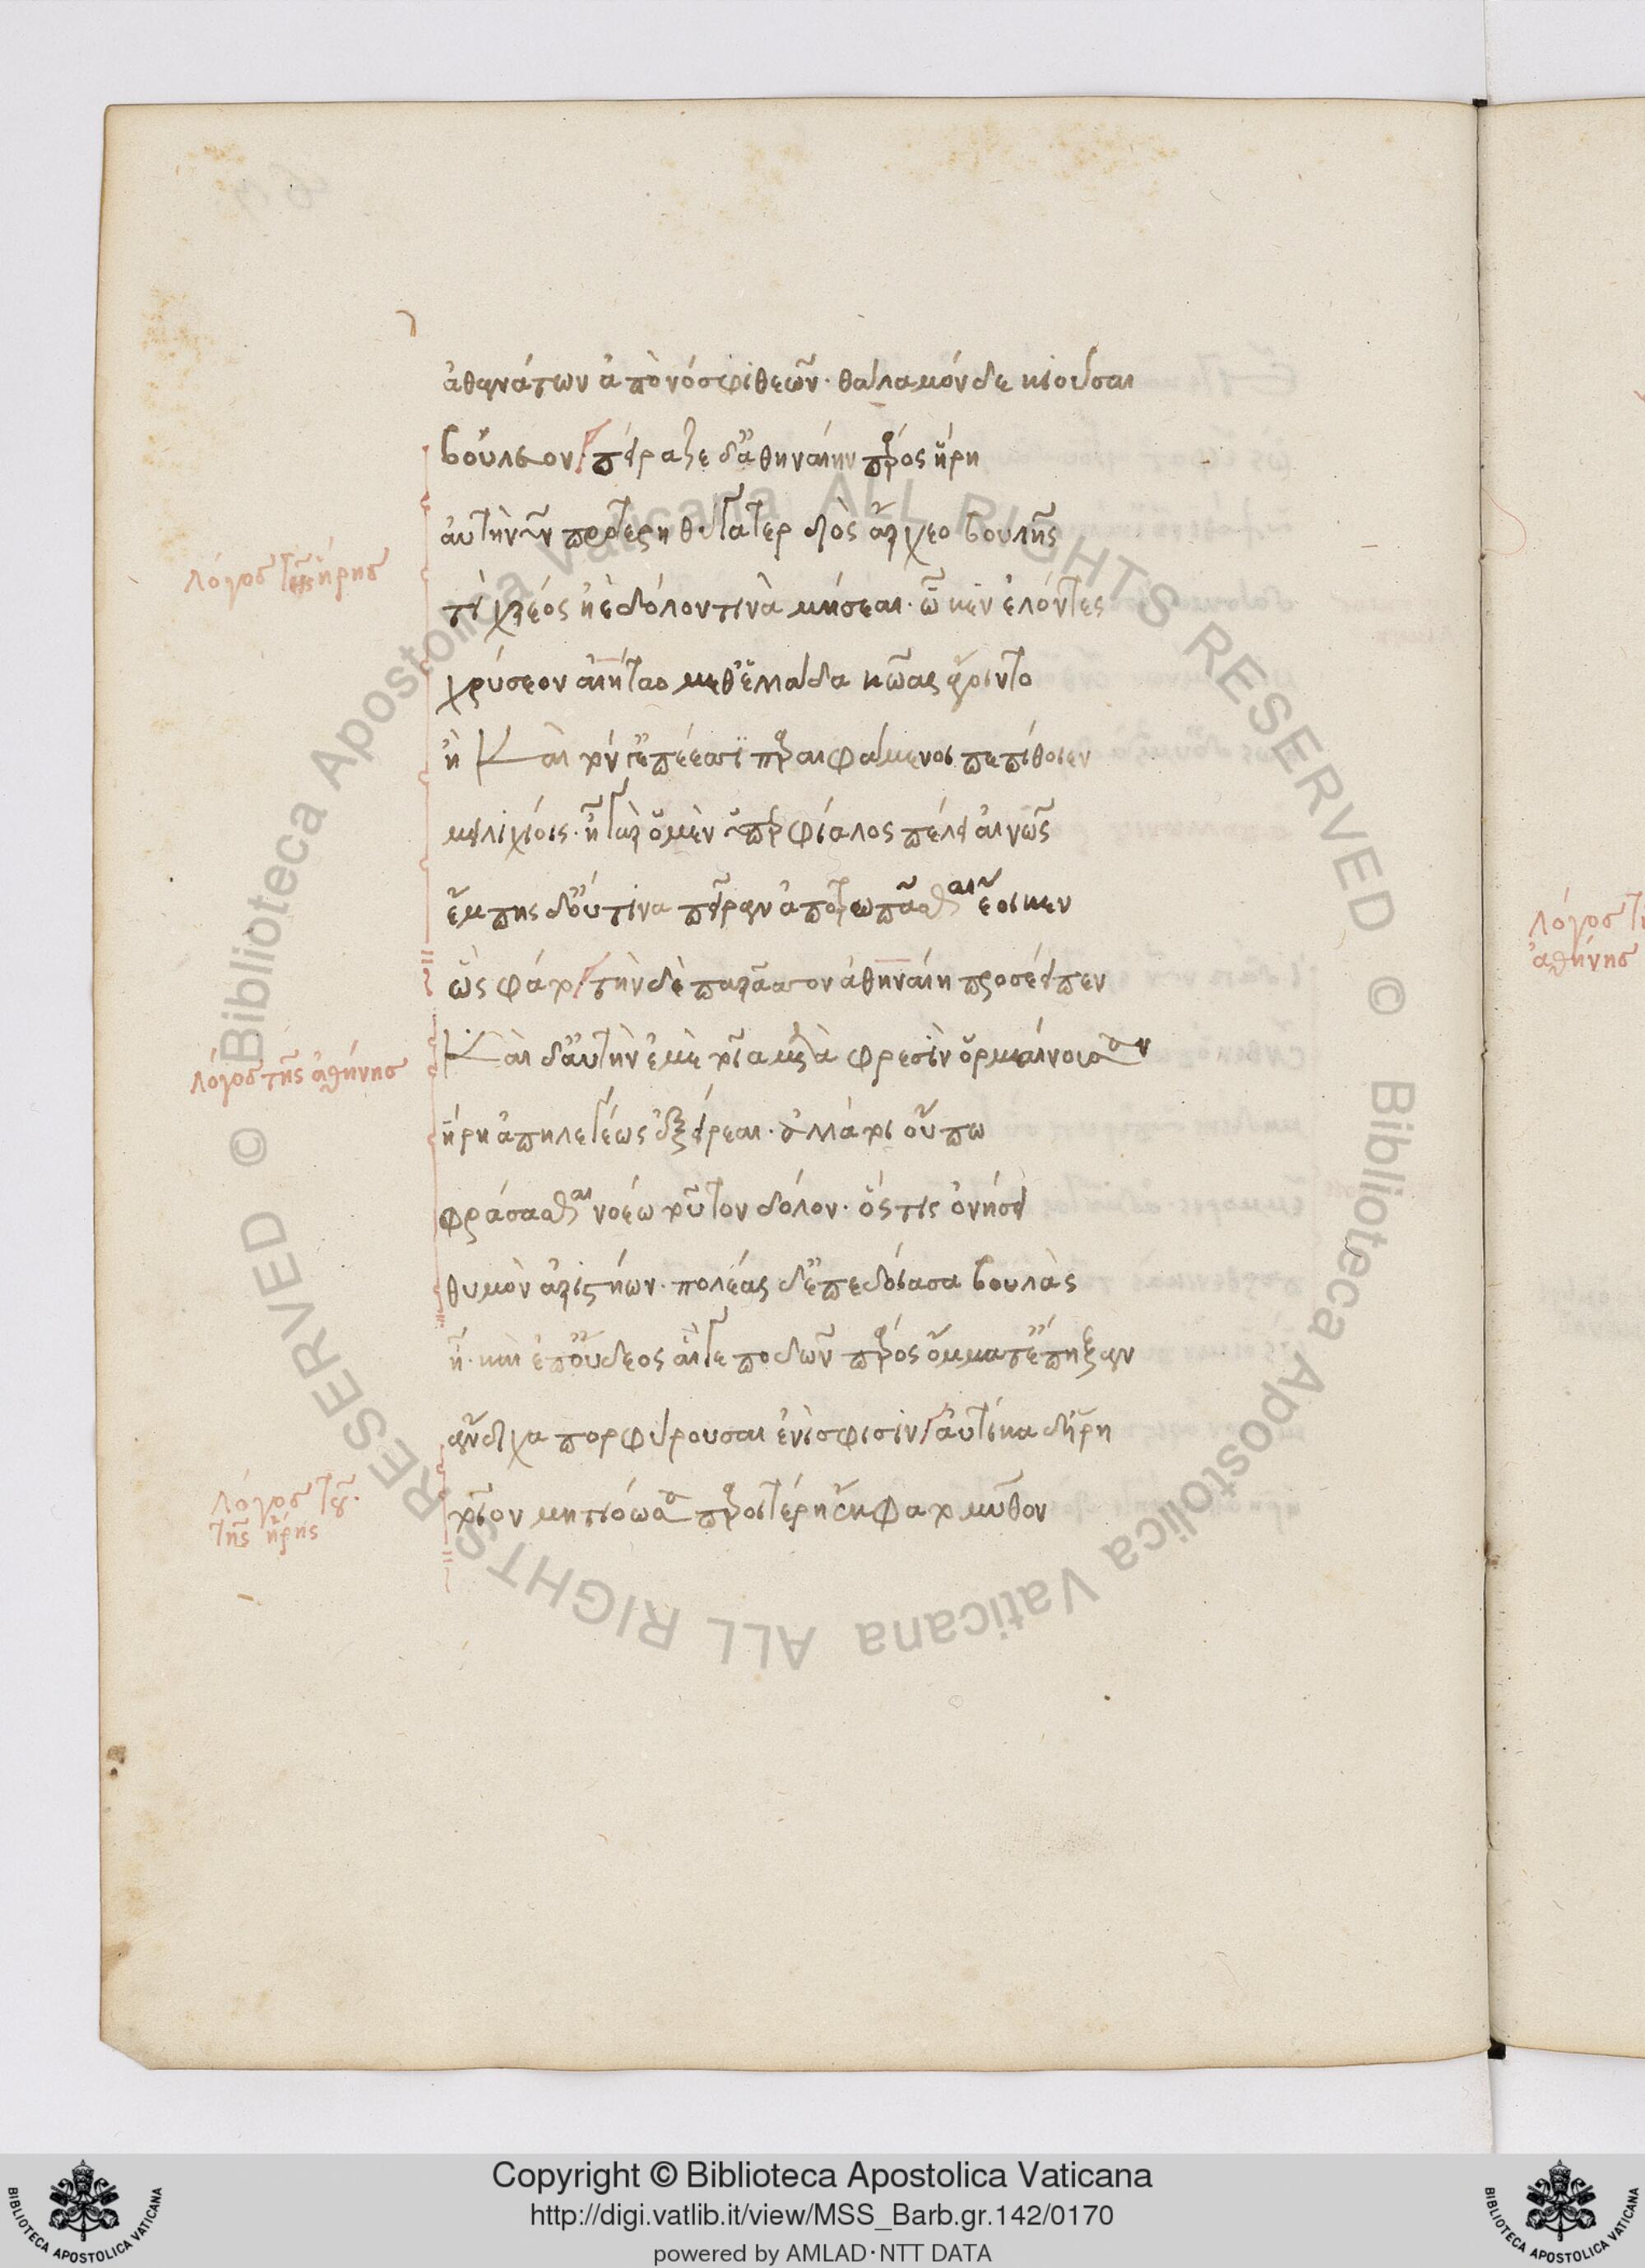 ἀθανάτων ἀπονόσφι θεῶν· θάλαμόνδε κιοῦσαι
βούλευον πείραζε δ' ἀθηναίην πρὸς ἥρη
αὐτὴ νῦν προτέρη θύγατερ διὸς ἄρχεο βουλῆς
λόγος τῆς ἥρης
τί χρέος ἠὲ δόλον τινὰ μήσεαι· ᾧ κεν ἑλόντες
χρύσεον αἰήταο μεθ' ἑλλάδα κῶας ἄγοιντο
ἢ καὶ τόν γ' ἐπέεσσι παραιφάμενοι πεπίθοιεν
μειλιχίοις· ἦ γὰρ ὁ μὲν ὑπερφίαλος πέλει αἰνῶς
ἔμπης δ' οὔτινα πεῖραν ἀποτρωπᾶσθαι ἔοικεν
ὣς φάτο τὴν δὲ παρᾶσσον ἀθηναίη προσέειπεν
λόγος τῆς ἀθήνης
Καὶ δ' αὐτὴν ἐμὲ τοῖα μετὰ φρεσὶν ὁρμαίνουσαν
ἥρη ἀπηλεγέως ἐξείρεαι· ἀλλά τοι οὔπω
φράσασθαι νοέω τοῦτον δόλον· ὅστις ὀνήσει
θυμὸν ἀριστήων· πολέας δ' ἐπεδοίασα βουλὰς
ἦ· καὶ ἐπ' οὔδεος αἵγε ποδῶν πρὸς ὄμματ' ἔπηξαν
ἄνδιχα πορφύρουσαι ἐνὶ σφίσιν αὐτίκα δ' ἥρη
λόγος τῆς ἥρης
τοῖον μητιόωσα προιτέρη ἔκφατο μῦθον
λόγος
ἀθήνης
© Biblioteca Apostolica Vaticana ALL RIGHTS RESERVED © Biblioteca Apostolica Vaticana ALL RIGHTS RESERVED
Copyright © Biblioteca Apostolica Vaticana
http://digi.vatlib.it/view/MSS_Barb.gr.142/0170
powered by AMLAD·NTT DATA
BIBLIOTECA APOSTOLICA VATICANA
BIBLIOTECA APOSTOLICA VATICANA